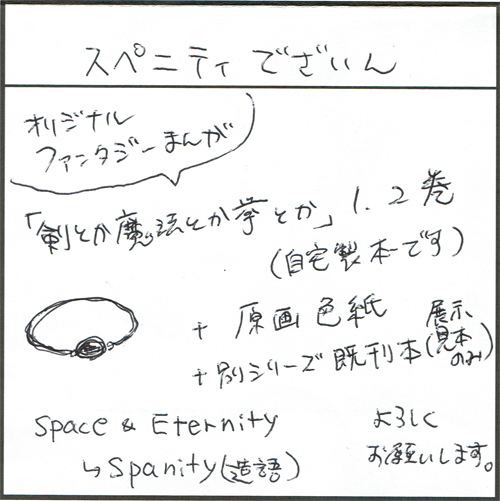 スペニティでざいん
オリジナル
ファンタジーまんが
「剣とか魔法とか拳とか」1.2巻
(自宅製本です)
+ 原画色紙
+別シリーズ既刊本(展示見本のみ)
Space & Eternity
↳ Spanity(造語)
よろしく
お願いします。